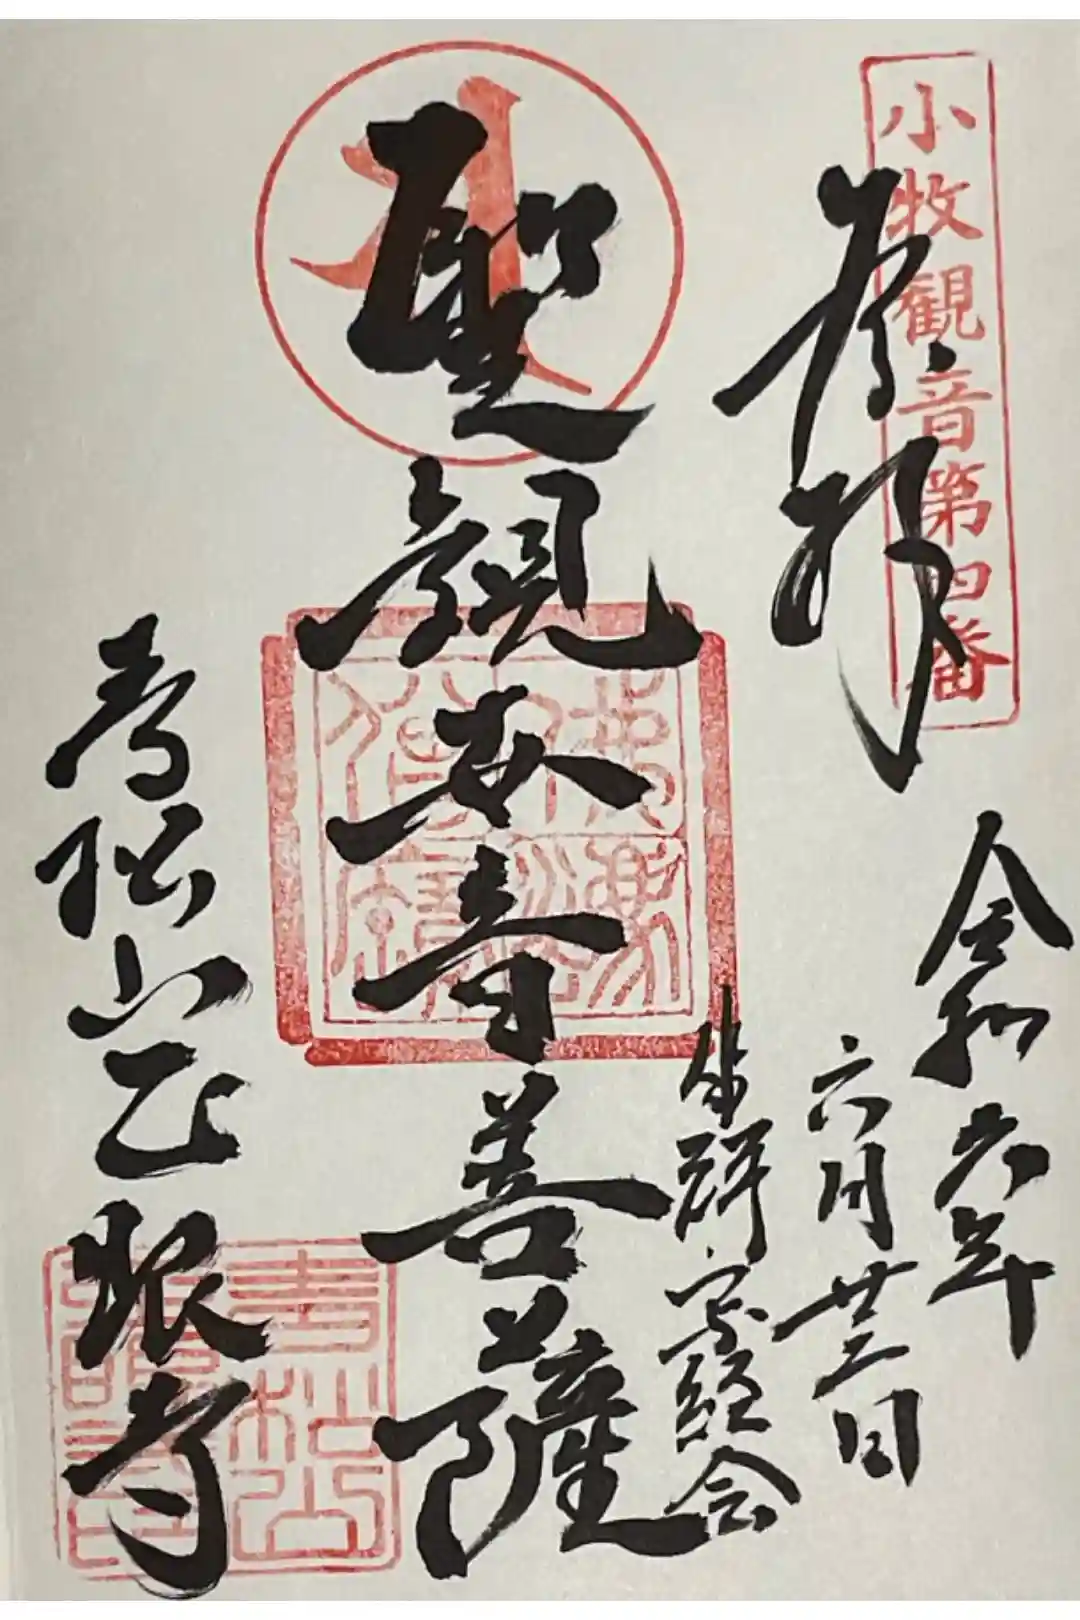 小牧観音第四番
奉拝
令和六年
六月廿三日
坐禅・写経会
聖観世音菩薩
青松山正眼寺
青松山